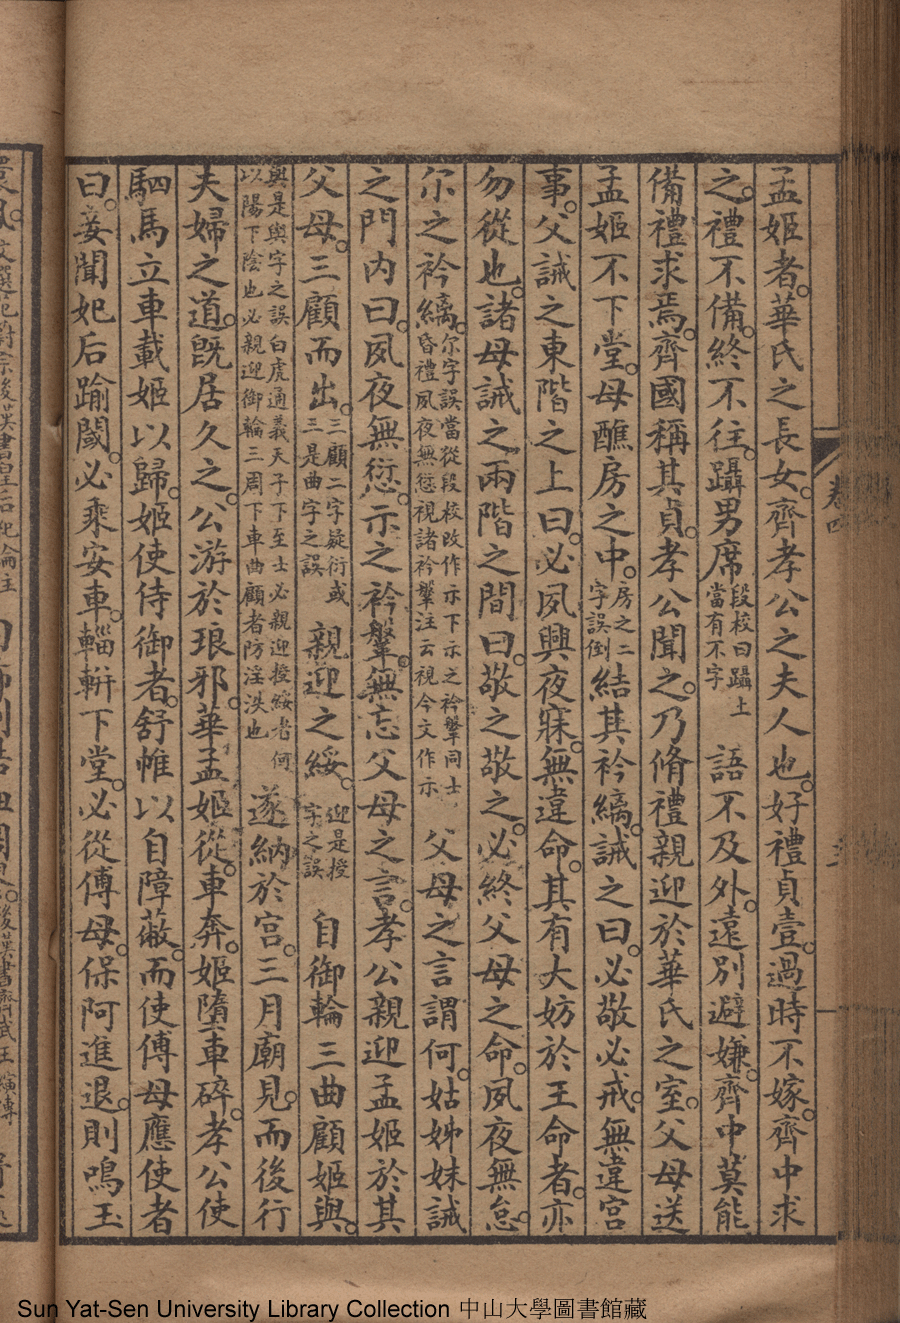 孟姬者華氏之長女齊孝公之夫人也好禮貞壹過時不嫁齊中求
之禮不備終不往躡男席段校曰躡上當有不字語不及外遠別避嫌齊中莫能
備禮求焉齊國稱其貞孝公聞之乃脩禮親迎於華氏之室父母送
孟姬不下堂母醮房之中房之二字誤倒結其衿縭誡之曰必敬必戒無違宮
事父誡之東階之上曰必夙興夜寐無違命其有大妨於王命者亦
勿從也諸母誡之兩階之間曰敬之敬之必終父母之命夙夜無怠
尔之衿縭尔字誤當從段校改作示下示之衿鞶同士昏禮夙夜無愆視諸衿鞶注云視今文作示父母之言謂何姑姊妹誡
之門內曰夙夜無愆示之衿鞶無忘父母之言孝公親迎孟姬於其
父母三顧而出三顧二字疑衍或三是曲字之誤親迎之綏迎是授字之誤自御輪三曲顧姬與
與是輿字之誤白虎通義天子下至士必親迎授綏者何以陽下陰也必親迎御輪三周下車曲顧者防淫泆也遂納於宮三月廟見而後行
夫婦之道既居久之公游於琅邪華孟姬從車奔姬墮車碎孝公使
駟馬立車載姬以歸姬使侍御者舒帷以自障蔽而使傅母應使者
曰妾聞妃后踰閾必乘安車輜軿下堂必從傅母保阿進退則鳴玉
卷四
Sun Yat-Sen University Library Collection 中山大學圖書館藏